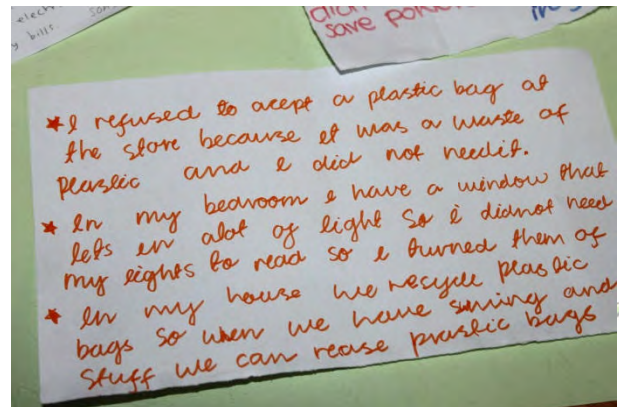 elect
y bills. son
didn
save power
★ I refused to acept a plastic bag at
the store because it was a waste of
plastic and i did not needit.
★ In my bedroom i have a window that
lets in alot of light so i didnot need
my lights to read so i turned them of
★ In my house we recycle plastic
bags so when we have swiming and
stuff we can rease plastic bags